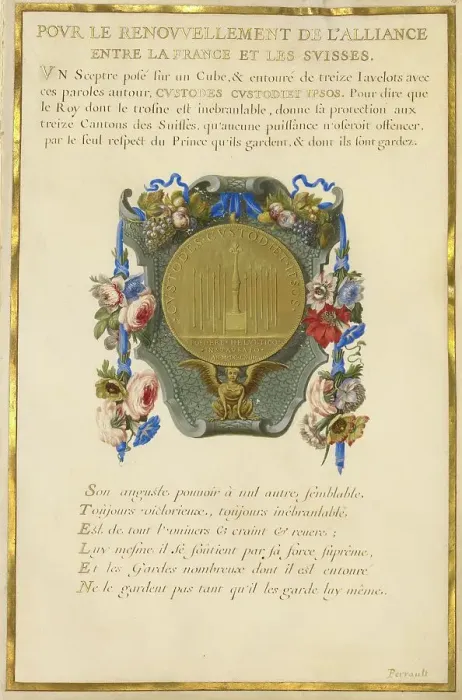 POVR LE RENOVVELLEMENT DE L'ALLIANCE
ENTRE LA FRANCE ET LES SVISSES.
VN Sceptre posé sur un Cube, & entouré de treize Iavelots avec
ces paroles autour, CVSTODES CVSTODIET IPSOS. Pour dire que
le Roy dont le trosne est inébranlable, donne sa protection aux
treize Cantons des Suisses, qu'aucune puissance n'oseroit offencer,
par le seul respect du Prince qu'ils gardent, & dont ils sont gardez.
CVSTODES CVSTODIET IPSOS
Son auguste pouvoir à nul autre semblable,
Toûjours victorieux, toûjours inébranlable,
Est de tout l'univers & craint & reveré;
Luy mesme il se soûtient par sa force suprême,
Et les Gardes nombreux dont il est entouré
Ne le gardent pas tant qu'il les garde luy même.
Perrault